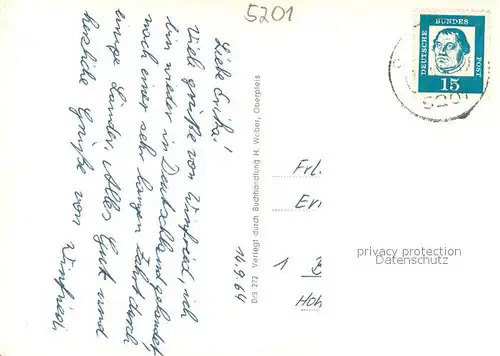 5201
DEUTSCHE
BUNDES
POST
15
5201
Liebe Erika!
Viele grüße von Winfried, ich
bin wieder in Deutschland gelandet,
nach einer sehr langen Fahrt durch
einige Länder. Alles Gute und
herzliche Grüße von Winfried
14.9.64
DrS 272 Verlegt durch Buchhandlung H. Weber, Oberpleis
Frl.
Eri
1
Höh
privacy protection
Datenschutz